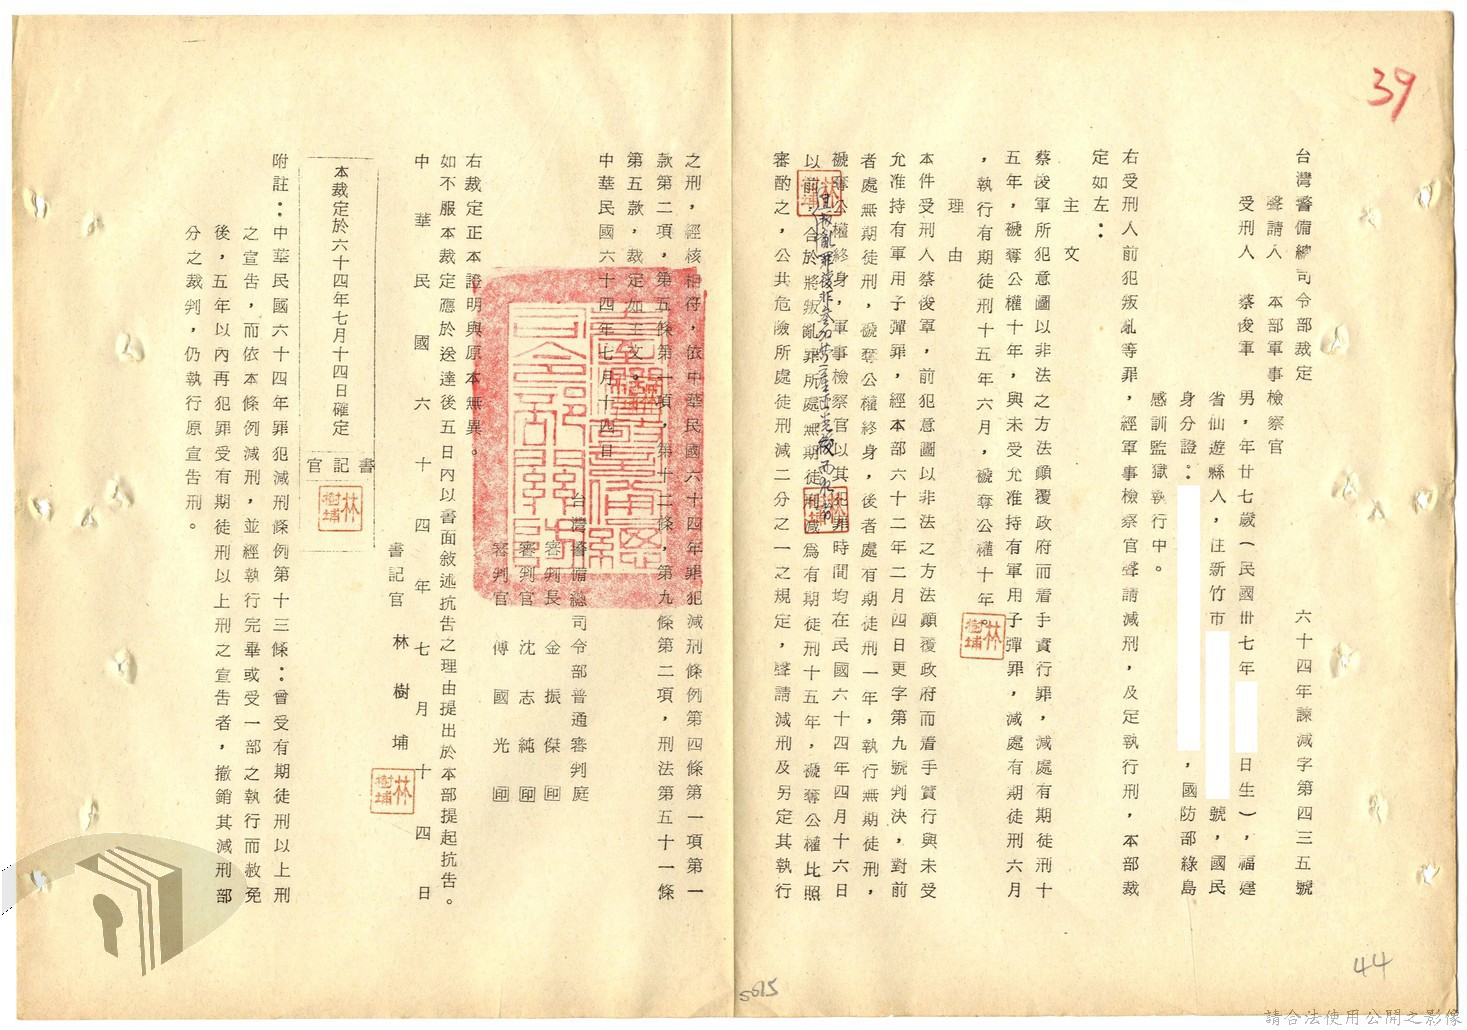 39
台灣警備總司令部裁定　六十四年諫減字第四三五號
聲請人　本部軍事檢察官
受刑人　蔡俊軍　男，年廿七歲（民國卅七年　日生），福建
省仙遊縣人，住新竹市　號，國民
身分證：　，國防部綠島
感訓監獄執行中。
右受刑人前犯叛亂等罪，經軍事檢察官聲請減刑，及定執行刑，本部裁
定如左：
主文
蔡俊軍所犯意圖以非法之方法顛覆政府而着手實行罪，減處有期徒刑十
五年，褫奪公權十年，與未受允准持有軍用子彈罪，減處有期徒刑六月
，執行有期徒刑十五年六月，褫奪公權十年。
理由
本件受刑人蔡俊軍，前犯意圖以非法之方法顛覆政府而着手實行與未受
允准持有軍用子彈罪，經本部六十二年二月四日更字第九號判決，對前
者處無期徒刑，褫奪公權終身，後者處有期徒刑一年，執行無期徒刑，
褫奪公權終身，軍事檢察官以其犯罪時間均在民國六十四年四月十六日
以前，合於將叛亂罪所處無期徒刑減為有期徒刑十五年，褫奪公權比照
審酌之，公共危險所處徒刑減二分之一之規定，聲請減刑及另定其執行
之刑，經核相符，依中華民國六十四年罪犯減刑條例第四條第一項第一
款第二項，第五條第一項，第十二條，第九條第二項，刑法第五十一條
第五款，裁定如主文。
中華民國六十四年七月十四日
台灣警備總司令部普通審判庭
審判長　金振傑　印
審判官　沈志純　印
審判官　傅國光　印
右裁定正本證明與原本無異。
如不服本裁定應於送達後五日內以書面敘述抗告之理由提出於本部提起抗告。
中華民國六十四年七月十四日
書記官　林樹埔
林樹埔
本裁定於六十四年七月十四日確定
書記官
林樹埔
附註：中華民國六十四年罪犯減刑條例第十三條：曾受有期徒刑以上刑
之宣告，而依本條例減刑，並經執行完畢或受一部之執行而赦免
後，五年以內再犯罪受有期徒刑以上刑之宣告者，撤銷其減刑部
分之裁判，仍執行原宣告刑。
44
5615
請合法使用公開之影像